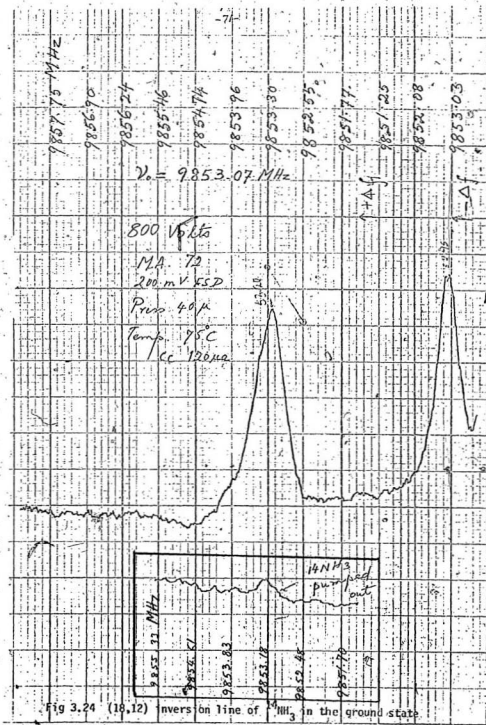 -71-
9857.75 MHz
9856.90
9856.24
9855.46
9854.74
9853.96
9853.30
9852.55
9851.77
9851.25
9852.08
9853.03
ν₀ = 9853.07 MHz
↑+Δf
↑-Δf
800 Volts
MA 72
200 mV FSD
Press 40 μ
Temp. 75°C
Cc 120 μa
14NH3
pumped
out
9855.33 MHz
9854.61
9853.83
9853.18
9852.48
9851.70
Fig 3.24 (18,12) inversion line of ¹⁴NH₃ in the ground state